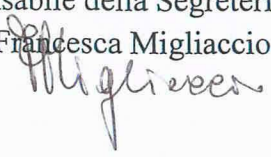 sabile della Segreteri
Francesca Migliaccio
Migliaccio